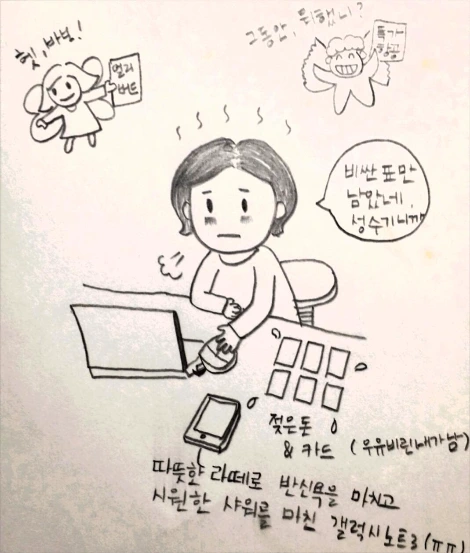 헷, 바보!
얼리
버드
그동안, 뭐했니?
특가
항공
비싼 표만
남았네,
성수기니까
젖은돈
& 카드 (우유비린내가남)
따뜻한 라떼로 반신욕을 마치고
시원한 샤워를 마친 갤럭시노트3 (ㅠㅠ)